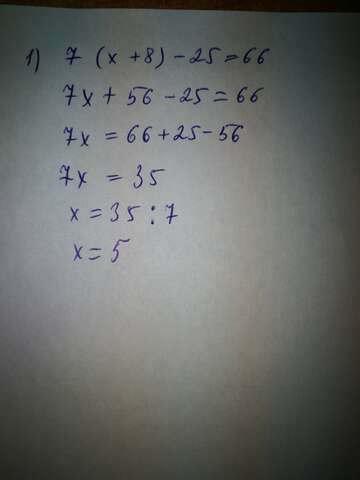 1) 7 (x + 8) - 25 = 66
7x + 56 - 25 = 66
7x = 66 + 25 - 56
7x = 35
x = 35 : 7
x = 5